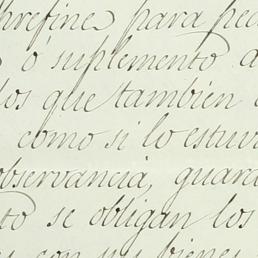 para
ó suplemento
los que tambien
como si lo estuv
observancia, guard
to se obligan los
con sus bienes